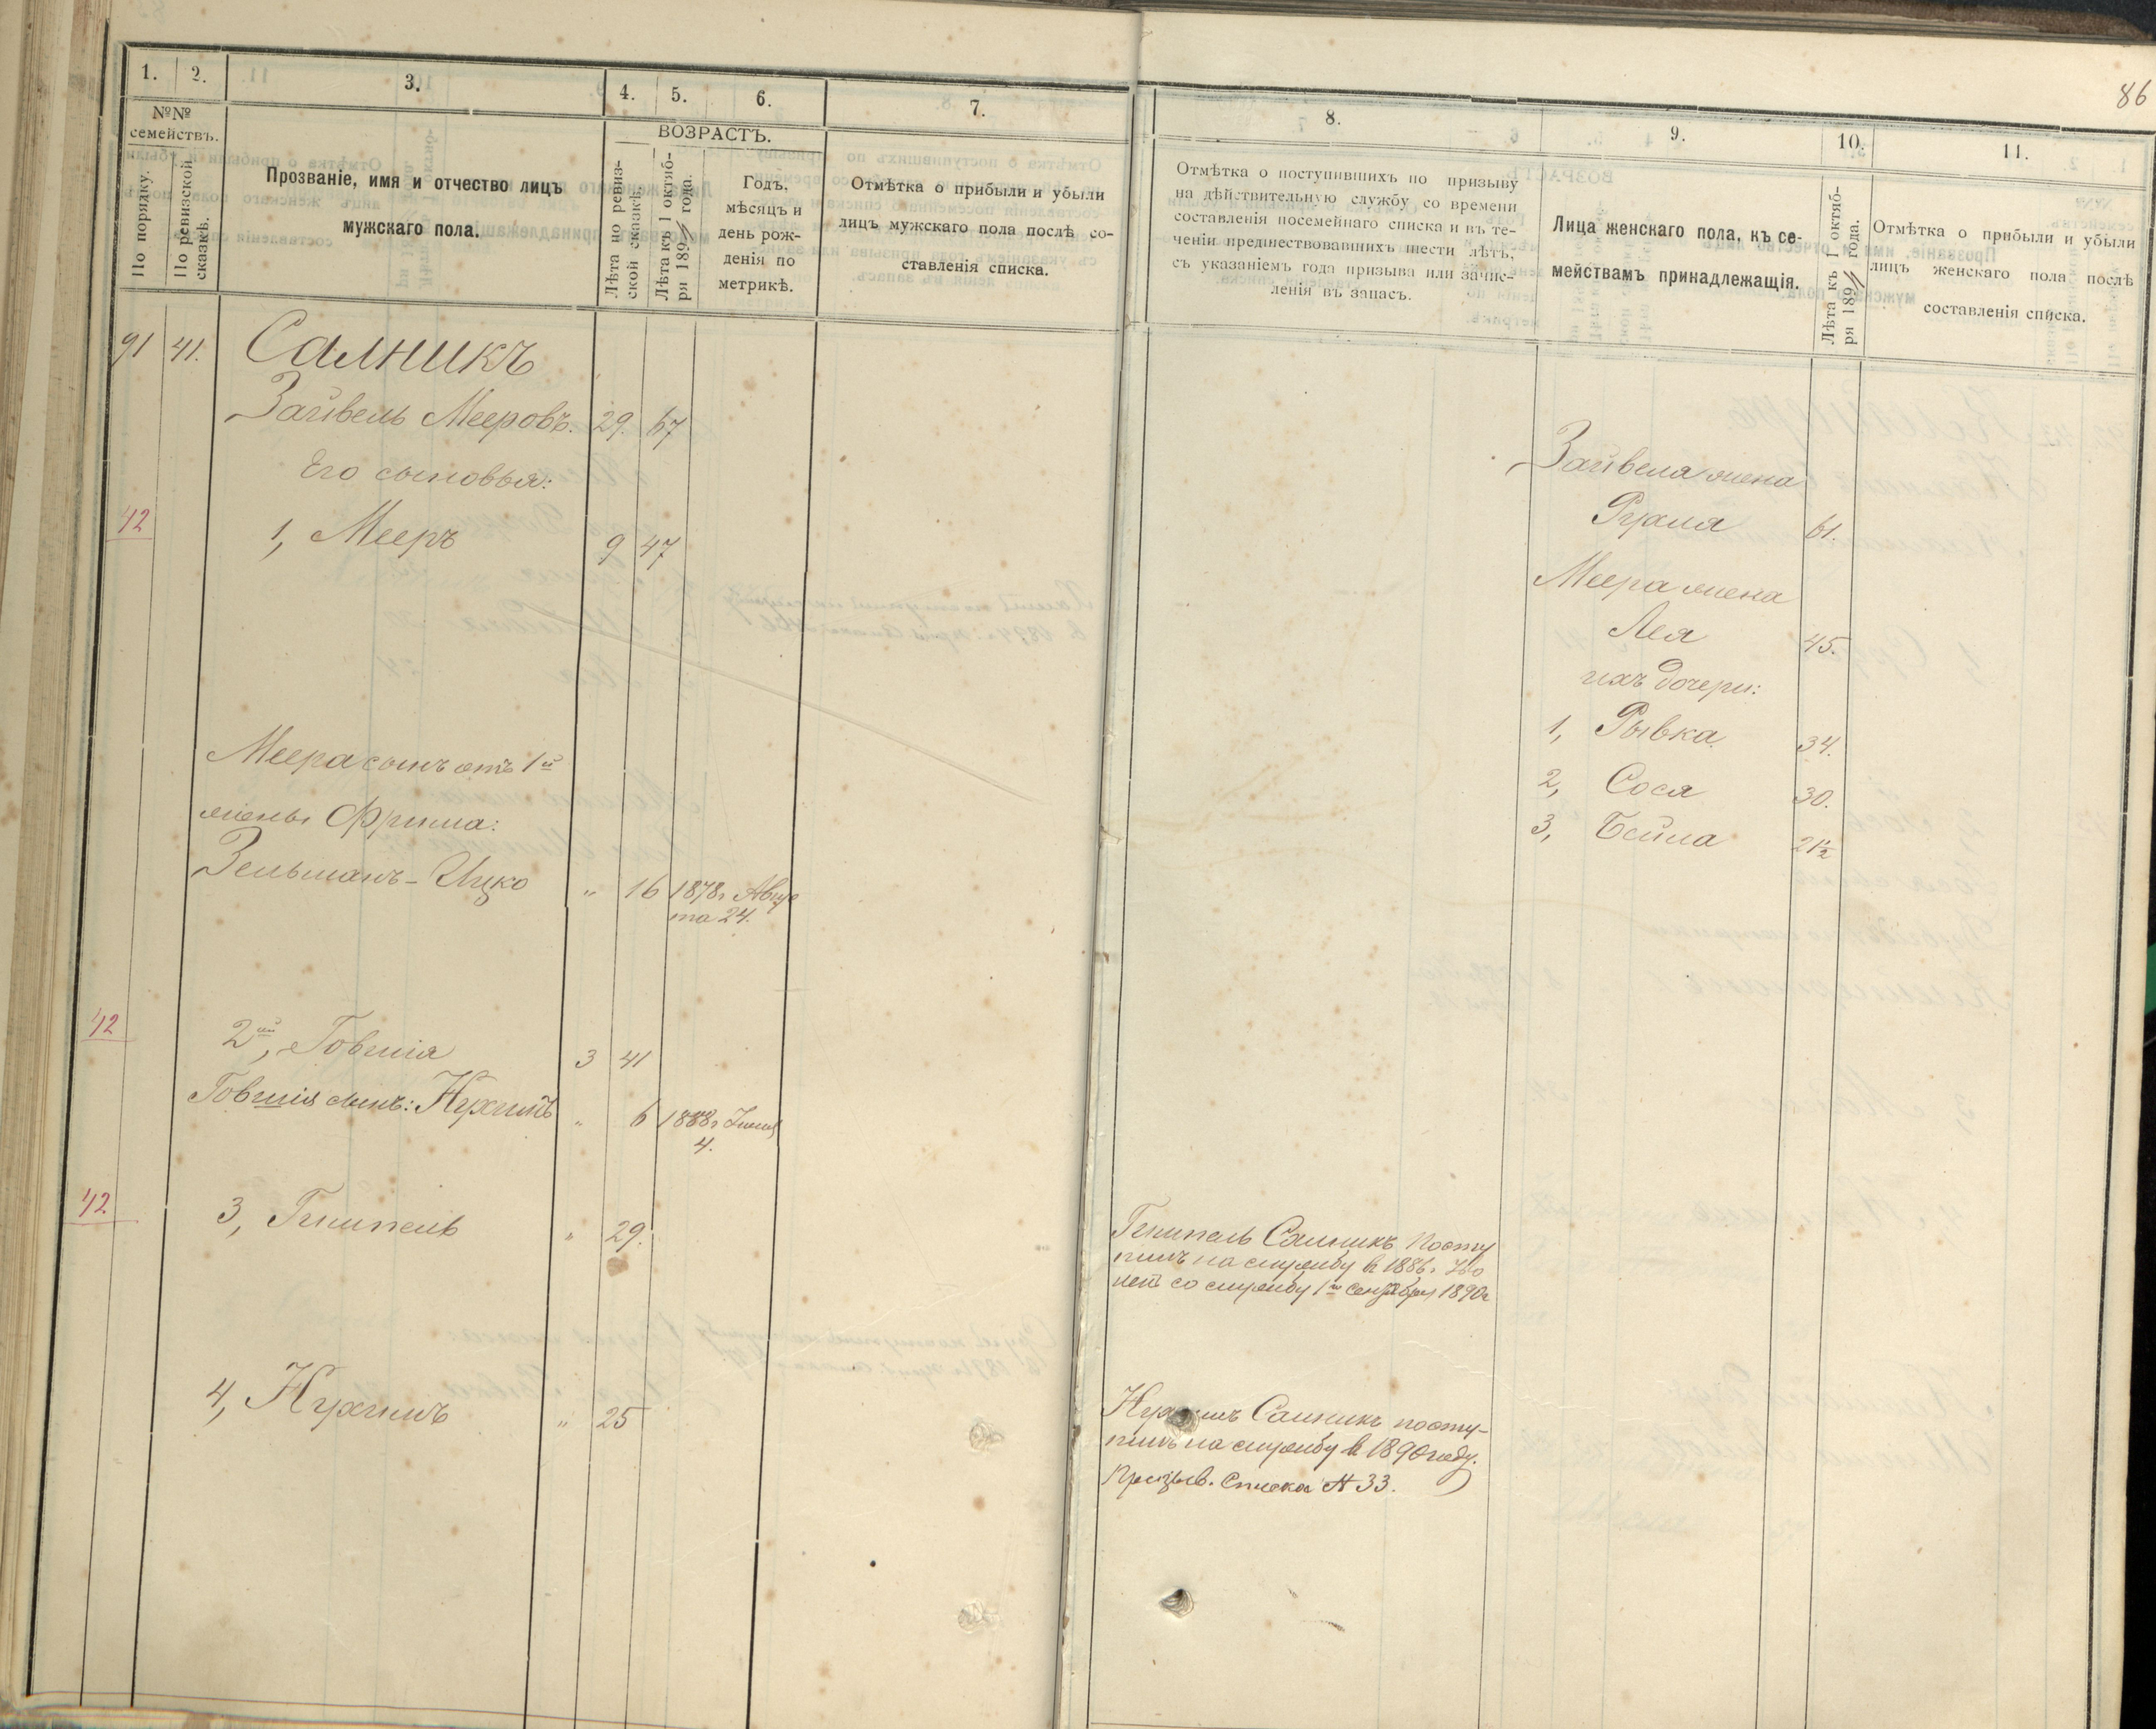 86
1. 2. 3. 4. 5. 6. 7.
№№
семействъ.
По порядку.
По ревизской
сказкѣ.
Прозваніе, имя и отчество лицъ
мужскаго пола.
ВОЗРАСТЪ.
Лѣта по ревиз-
ской сказкѣ.
Лѣта къ 1 октяб-
ря 189 года.
Годъ,
мѣсяцъ и
день рож-
денія по
метрикѣ.
Отмѣтка о прибыли и убыли
лицъ мужскаго пола послѣ со-
ставленія списка.
91 41. Салникъ
Зайвель Мееровъ. 29. 67
Его сыновья:
42
1, Мееръ 9 47
Меера сынъ отъ 1й
жены Фрима:
Зельманъ-Ицко " 16 1878г Авгус
та 24.
42
2й, Говшіа 3 41
Говшія сынъ: Нухимъ " 6 1888г
4.
42
3, Гимпель " 29.
4, Нухимъ " 25
8. 9. 10. 11.
Отмѣтка о поступившихъ по призыву
на дѣйствительную службу со времени
составленія посемейнаго списка и въ те-
ченіи предшествовавшихъ шести лѣтъ,
съ указаніемъ года призыва или зачис-
ленія въ запасъ.
Лица женскаго пола, къ се-
мействамъ принадлежащія.
Лѣта къ 1 октяб-
ря 189 года.
Отмѣтка о прибыли и убыли
лицъ женскаго пола послѣ
составленія списка.
Зайвела жена
Рухля 61.
Меера жена
Лея 45.
ихъ дочери:
1, Рывка 34.
2, Сося 30.
3, Бейла 21½
Гимпель Салникъ посту
пилъ на службу в 1886г.
со службу 1го Сентября 1890г
Нухимъ Салникъ посту-
пилъ на службу в 1890 году.
Призыв. Списка № 33.